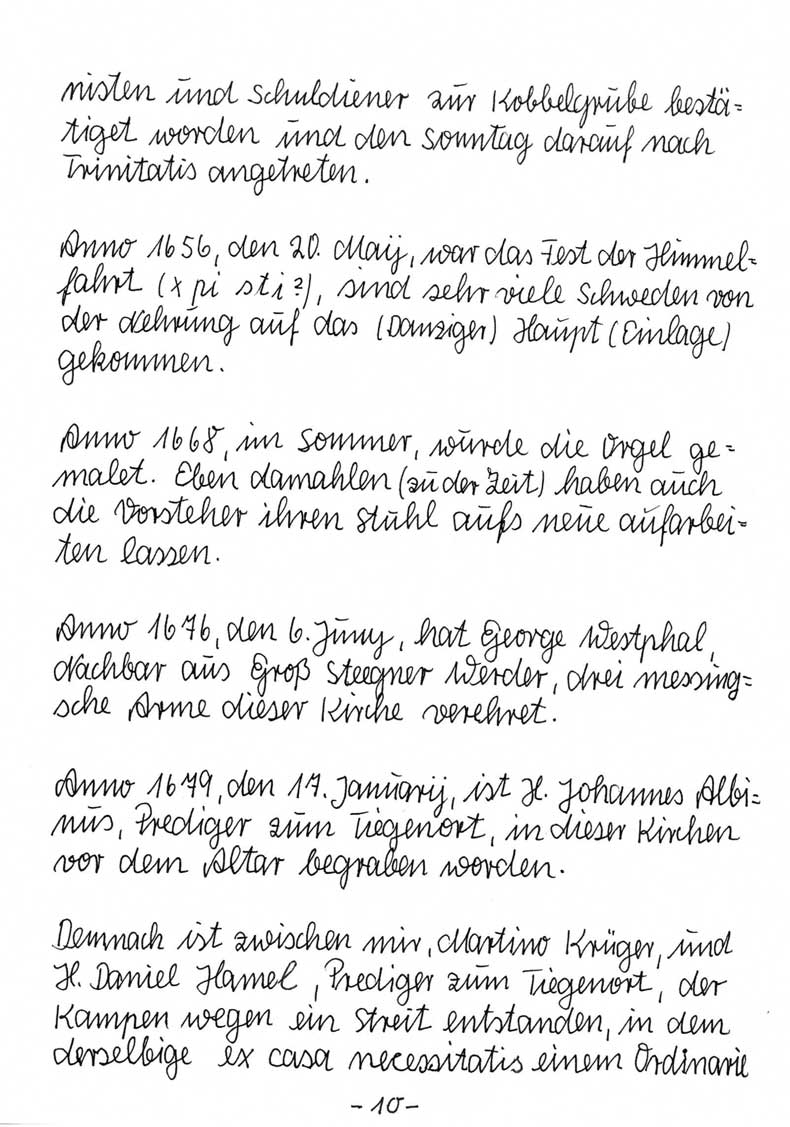 nisten und Schuldiener zur Kobbelgrube bestä=
tiget worden und den Sonntag darauf nach
Trinitatis angetreten.
Anno 1656, den 20. Maij, war das Fest der Himmel=
fahrt (x pi sti?), sind sehr viele Schweden von
der Nehrung auf das (Danziger) Haupt (Einlage)
gekommen.
Anno 1668, im Sommer, wurde die Orgel ge=
malet. Eben damahlen (zu der Zeit) haben auch
die Vorsteher ihren Stuhl aufs neue aufarbei=
ten lassen.
Anno 1676, den 6. Juny, hat George Westphal,
Nachbar aus Groß Steegner Werder, drei messing=
sche Arme dieser Kirche verehret.
Anno 1679, den 17. Januarij, ist H. Johannes Albi=
nus, Prediger zum Tiegenort, in dieser Kirchen
vor dem Altar begraben worden.
Demnach ist zwischen mir, Martino Krüger, und
H. Daniel Hamel, Prediger zum Tiegenort, der
Kampen wegen ein Streit entstanden, in dem
derselbige ex casa necessitatis einem Ordinarie
- 10 -